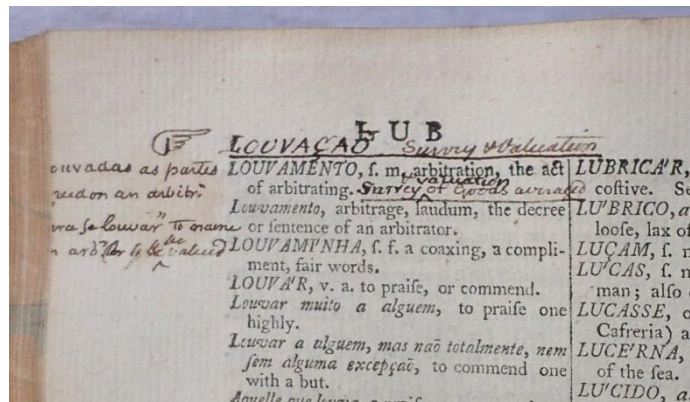 LUB
LOUVAÇAŌ Survey & Valuation
ouvadas as partes
on an arbitr.
se louvar" To name
LOUVAMENTO, ſ. m. arbitration, the act
of arbitrating. Survey of Goods averaged
valuation
Louvamento, arbitrage, laudum, the decree
or ſentence of an arbitrator.
LOUVAMI'NHA, ſ. f. a coaxing, a compli-
ment, fair words.
LOUVA'R, v. a. to praiſe, or commend.
Louvar muito a alguem, to praiſe one
highly.
Louvar a alguem, mas naõ totalmente, nem
ſem alguma excepçaõ, to commend one
with a but.
LUBRICA'R,
coſtive. Se
LU'BRICO, a
looſe, lax of
LUÇAM, ſ. m
LU'CAS, ſ. m
man; alſo
LUCASSE, o
Cafreria) a
LUCE'RNA,
of the ſea.
LU'CIDO, a